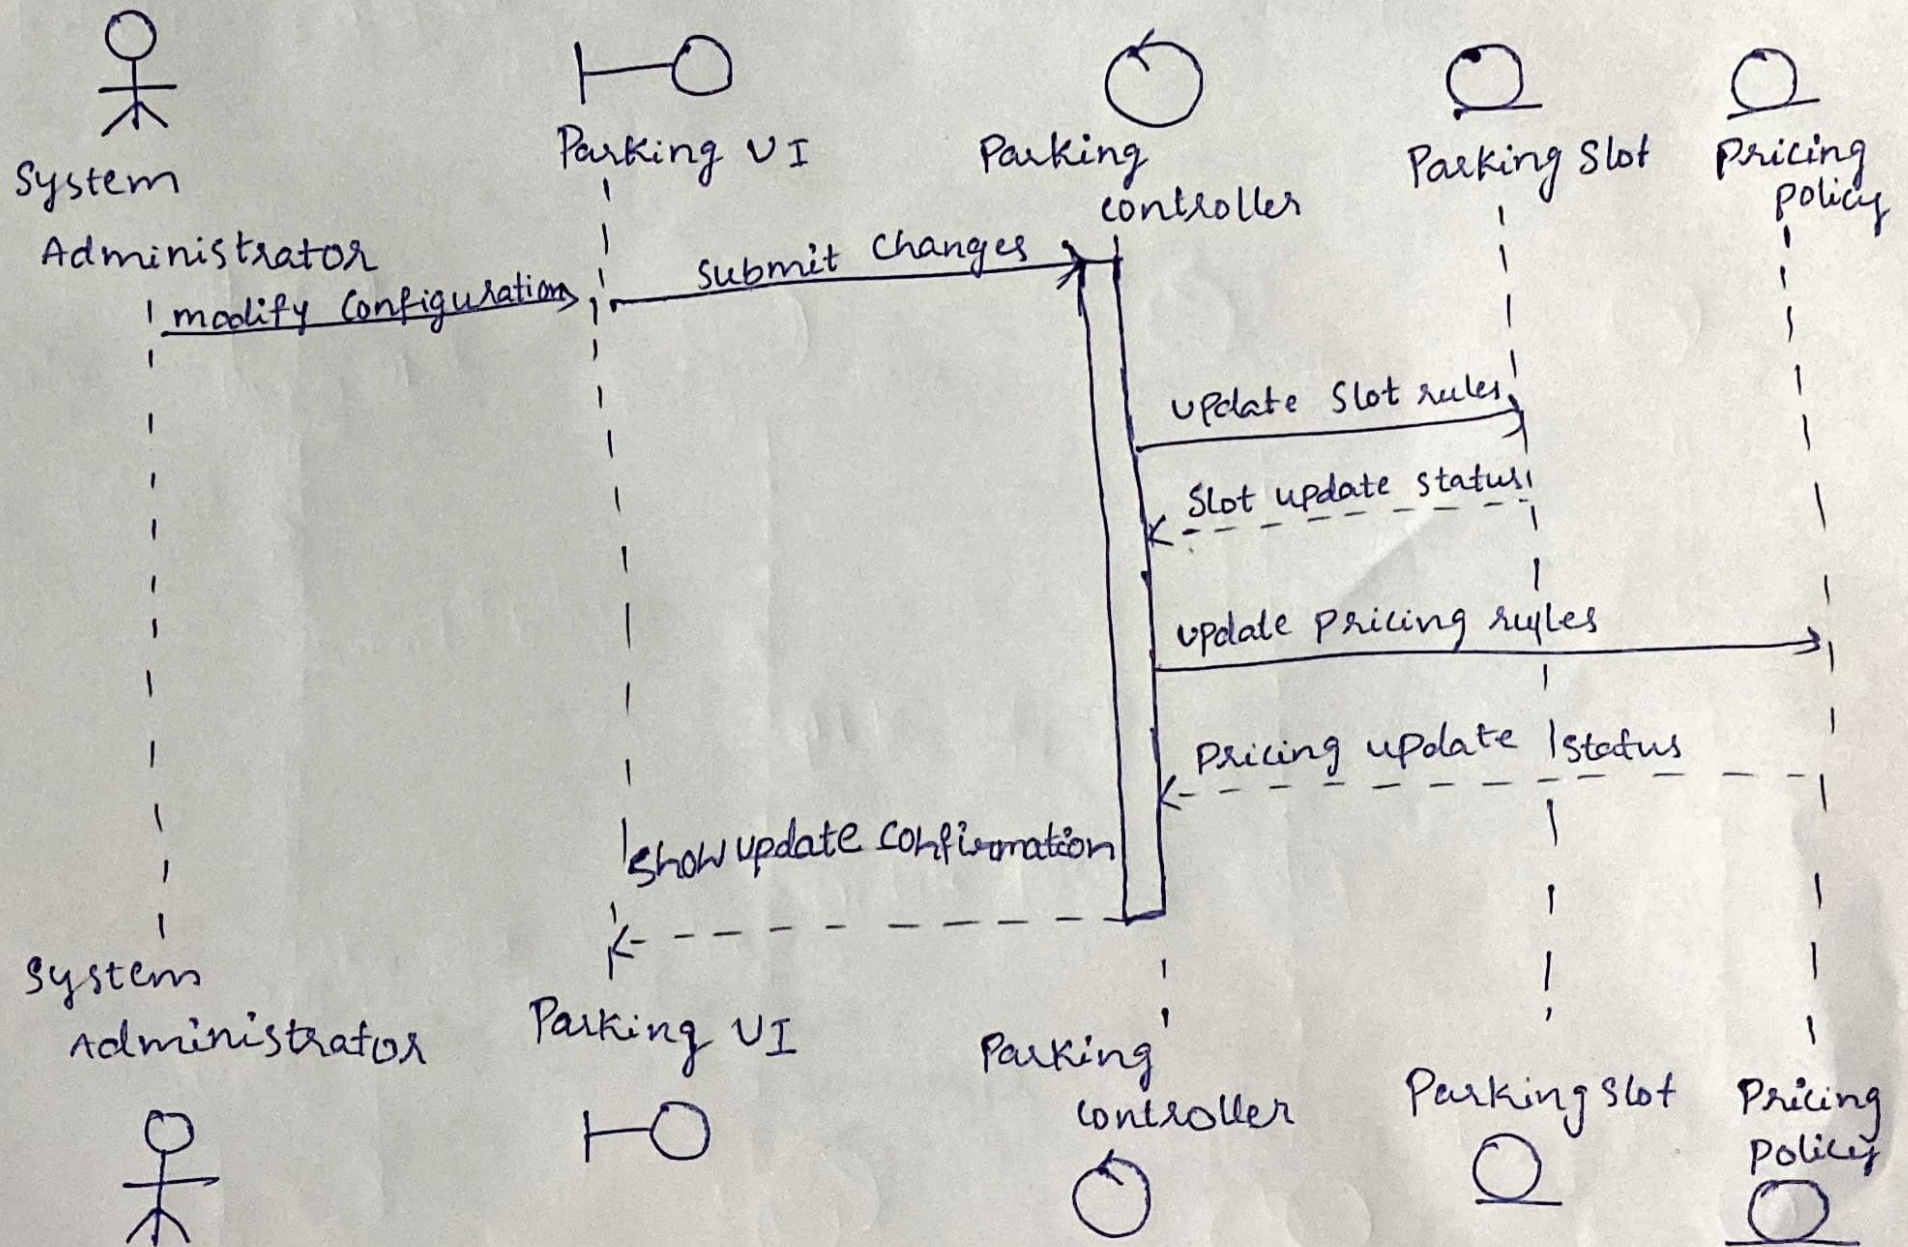 System
Administrator
Parking UI
Parking
controller
Parking Slot
Pricing
Policy
modify Configuration
Submit Changes
update Slot rules
Slot update status
update Pricing rules
Pricing update status
Show update Confirmation
System
Administrator
Parking UI
Parking
controller
Parking Slot
Pricing
Policy